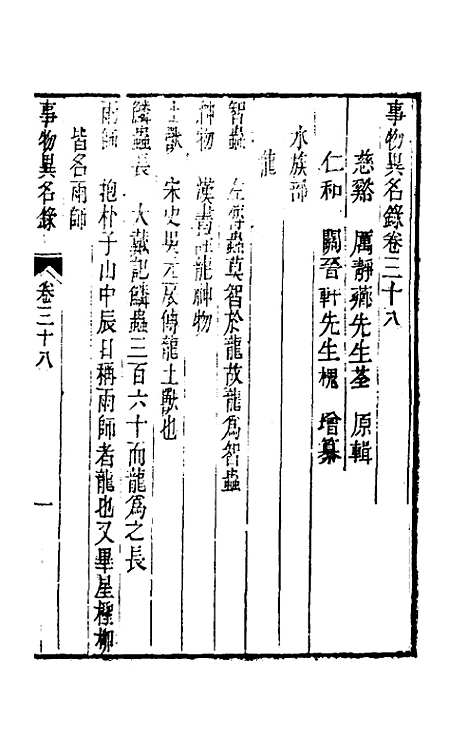 事物異名錄卷三十八
慈谿 厲靜薌先生荃 原輯
仁和 關晉軒先生槐 增纂
水族部
龍
智蟲 左傳蟲莫智於龍故龍為智蟲
神物 漢書註龍神物
土獸 宋史吳元扆傳龍土獸也
鱗蟲長 大戴記鱗蟲三百六十而龍為之長
雨師 抱朴子山中辰日稱雨師者龍也又畢星檉柳
皆名雨師
事物異名錄 卷三十八 一